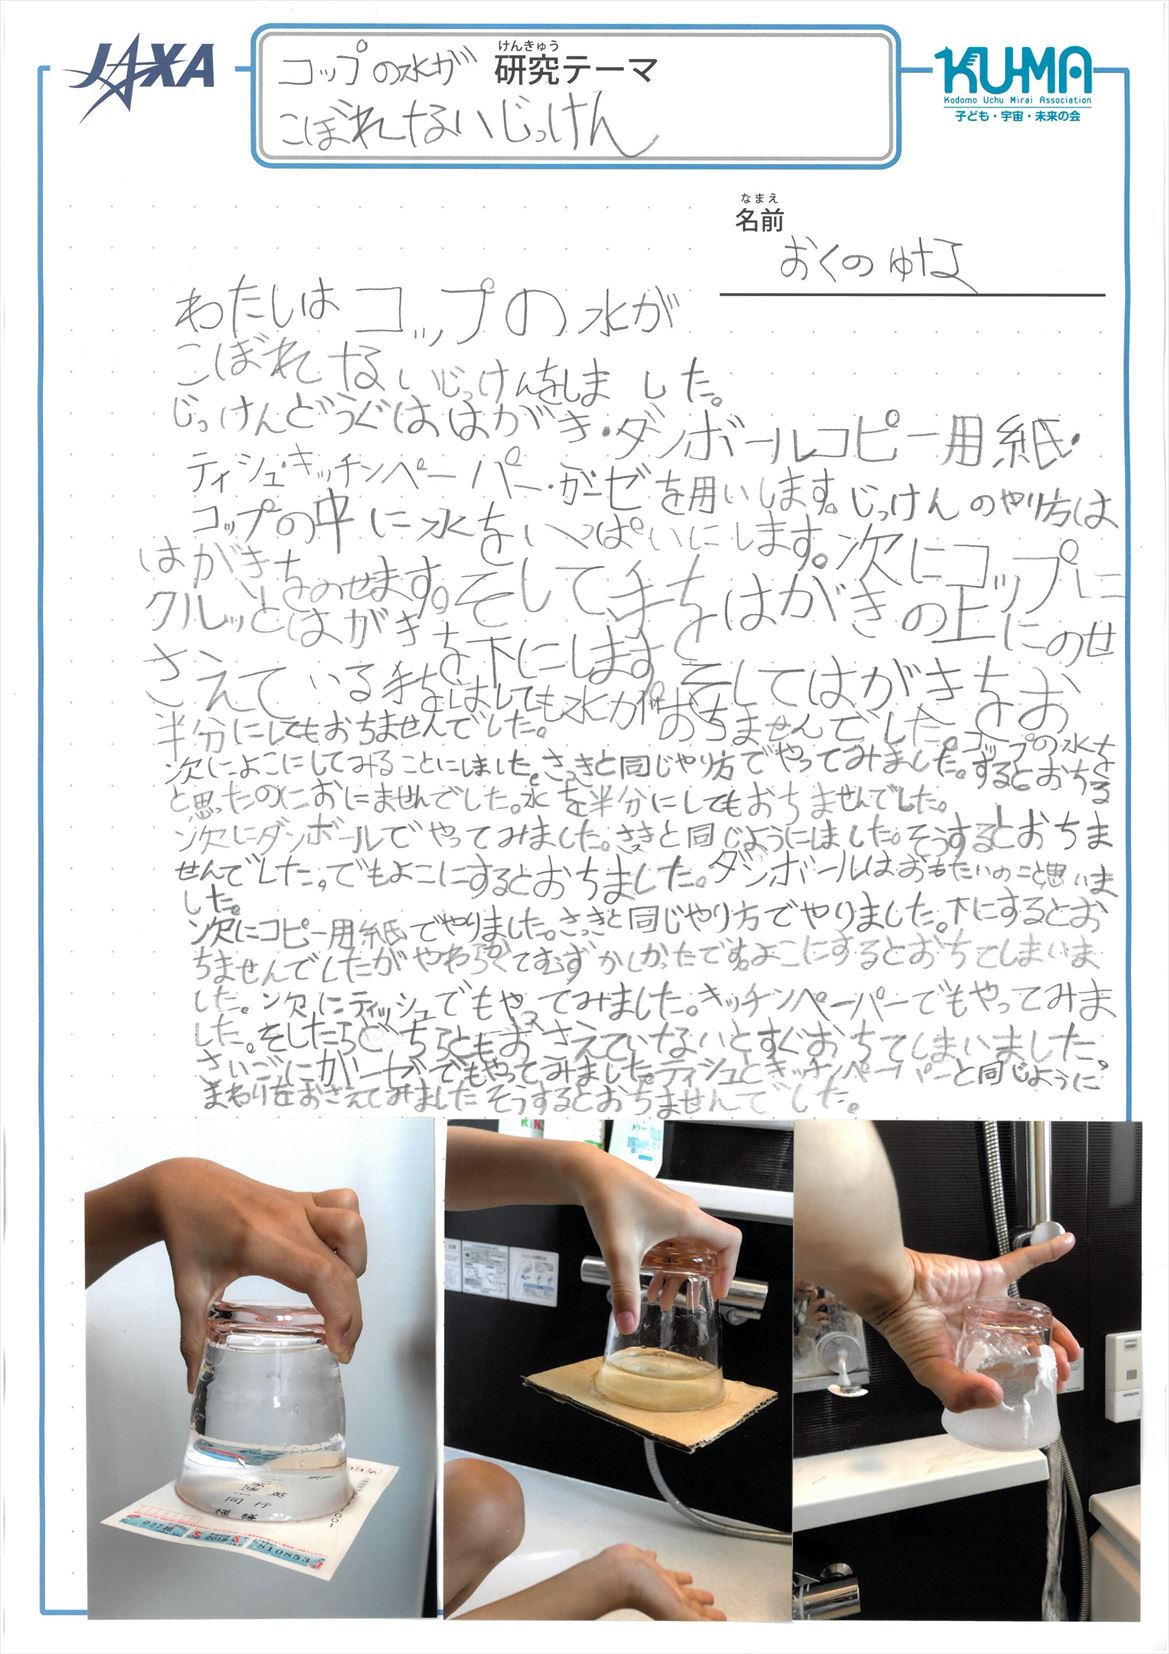 JAXA
コップの水が
けんきゅう
研究テーマ
こぼれないじっけん
KU-MA
Kodomo Uchu Mirai Association
子ども・宇宙・未来の会
なまえ
名前
おくの ゆな
わたしはコップの水が
こぼれないじっけんをしました。
じっけんどうぐははがき・ダンボールコピー用紙・
ティシュ・キッチンペーパー・ガーゼを用いします。じっけんのやり方は
コップの中に水をいっぱいにします。次にコップに
はがきをのせます。そして手をはがきの上にのせ
クルッとはがきを下にします。そしてはがきをお
さえている手をはなしても水がおちませんでした。コップの水を
半分にしてもおちませんでした。
次によこにしてみることにしました。さっきと同じやり方でやってみました。するとおちる
と思ったのにおにませんでした。水を半分にしてもおちませんでした。
次にダンボールでやってみました。さっきと同じようにはました。そうするとおちま
せんでした。でもよこにするとおちました。ダンボールはおもたいのこと思いま
した。
次にコピー用紙でやりました。さっきと同じやり方でやりました。下にするとお
ちませんでしたがやわらかくてむずかしかったです。よこにするとおちてしまいま
した。次にティッシュでもやってみました。キッチンペーパーでもやってみま
した。そしたらどちらともおさえていないとすぐおちてしまいました。
さいごにガーゼでもやってみました。ティシュとキッチンペーパーと同じように
まわりをおさえてみました そうするとおちませんでした。
同行
様様
2018
810853